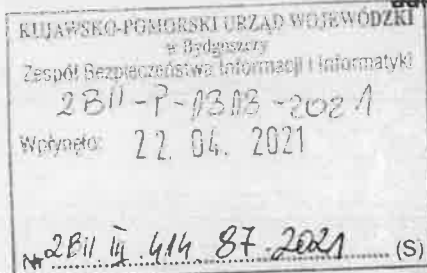 KUJAWSKO-POMORSKI URZĄD WOJEWÓDZKI
w Bydgoszczy
Zespół Bezpieczeństwa Informacji i Informatyki
ZBiI-P-1313-2021
Wpłynęło: 22. 04. 2021
Nr ZBiI.III.414.87.2021 (S)